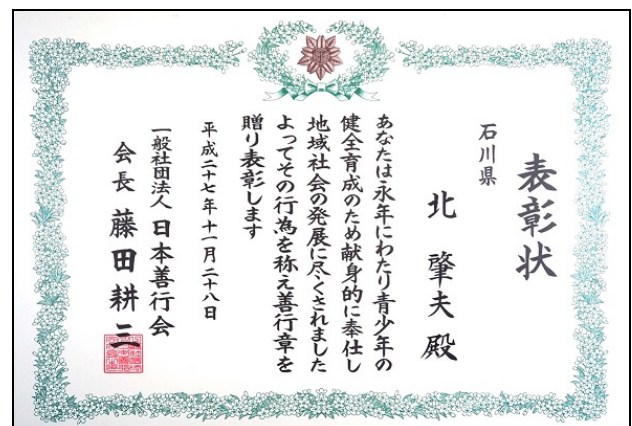 表彰状
石川県
北 肇夫殿
あなたは永年にわたり青少年の
健全育成のため献身的に奉仕し
地域社会の発展に尽くされました
よってその行為を称え善行章を
贈り表彰します
平成二十七年十一月二十八日
一般社団法人 日本善行会
会長 藤田耕三